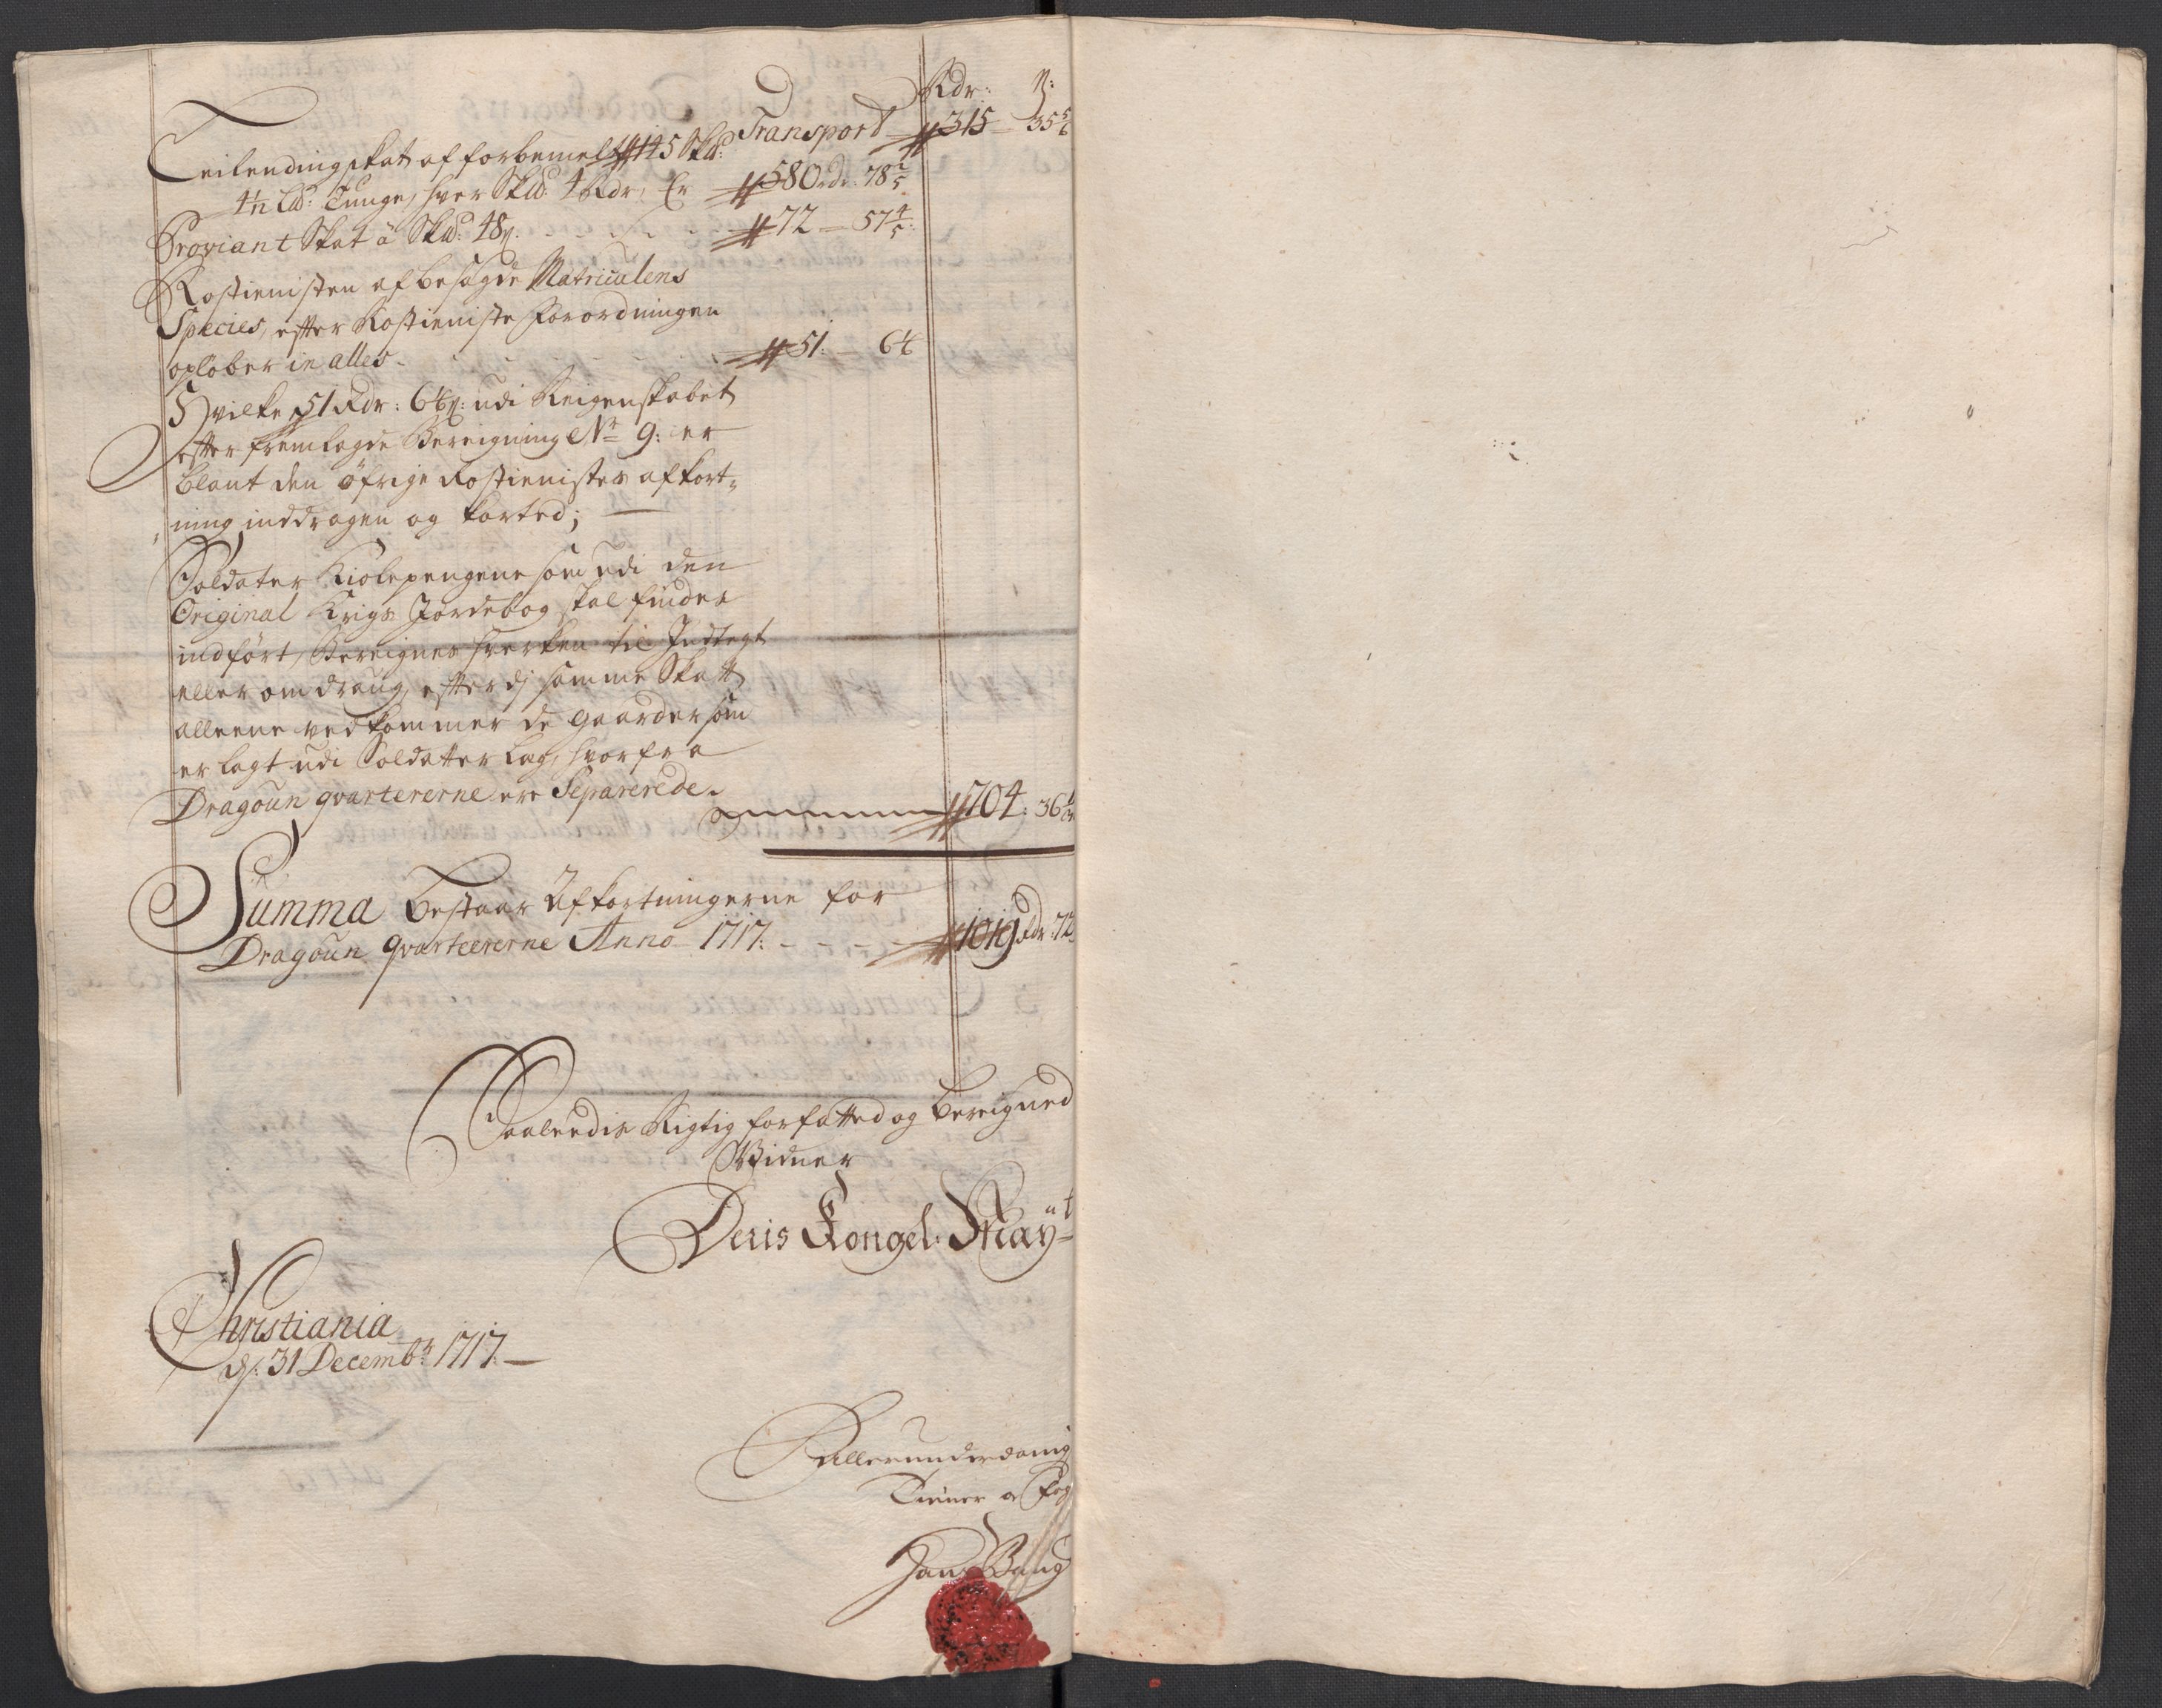 Rdr: ß:
Transport # 315 – 35 5/6
Leilendingskat af forbemelte # 145 Skd:
4½ Ld: Tunge, hver Skd: 4 Rdr, Er # 580 rdr: 78 2/5
Proviant Skat â Skd: 48ß: # 72 – 57 4/5:
Rostienisten af besagde Matriculens
Species, efter Rostieniste forordningen
opløber in alles – # 51: – 64
Hvilke 51 Rdr: 64ß: udi Reigenskabet
efter fremlagde Bereigning Nr 9: er
blant den øfrige Rostienistes afkort-
ning inddragen og korted;
Soldater Kiolepengene som udi den
Original Krigs Jordebog skal findes
indført, Bereignes hverken til Indtegt
eller omdraug, efterdj samme Skatt
alleene vedkommer de gaarder som
er lagt udi Soldatter Lag, hvorfra
Dragoun qvartererne ere Separerede.
# 704: 36
Summa Bestaar Afkortningerne for
Dragoun qvarteererne Anno 1717: - - - # 1019 Rdr: 72
Saaleedis Rigtig forfatted og bereigned
Vidner
Deris Kongel: May:t
Christiania
ds: 31 Decembr: 1717. —
allerunderdanig
Tiener og Fog
Hans